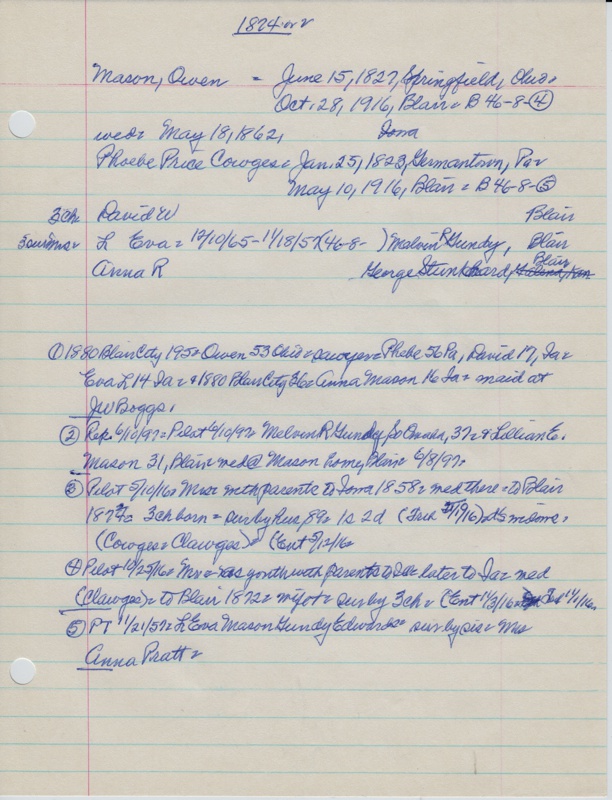 1874
Mason, Owen = June 15, 1827, Springfield, Ohio=
Oct. 28, 1916, Blair= B 46-8-④
wed= May 18, 1862, Iowa
Phoebe Price Cowges= Jan. 25, 1823, Germantown, Pa=
May 10, 1916, Blair= B 46-8-③
3ch= David W Blair
L Eva= 12/10/65-11/18/57(46-8- ) Melvin R Gundy, Blair
Anna R George Stunkard, Blair
① 1880 Blair City 195= Owen 53 Ohio= sawyer= Phebe 56 Pa, David 17, Ia=
Eva L 14 Ia= & 1880 Blair City 36= Anna Mason 16 Ia= maid at
JW Boggs.
② Rep. 6/10/97= Pilot 6/10/97= Melvin R Gundy So Omaha, 37= & Lillian E.
Mason 31, Blair= wed @ Mason home, Blair= 6/8/97=
③ Pilot 5/10/16= Mrs= with parents to Iowa 1858= wed there= to Blair
3ch born= sur by hus, 89= 1s 2d
(Cowges= Clawges)= (Ent 5/12/16=
④ Pilot 10/25/16= Mr= youth with parents to later to Ia= wed
(Clawges)= to Blair 1872= sur by 3ch= (Ent 11/3/16=
⑤ PT 11/21/57= L Eva Mason Gundy Edwards= sur by sis= Mrs
Anna Pratt=